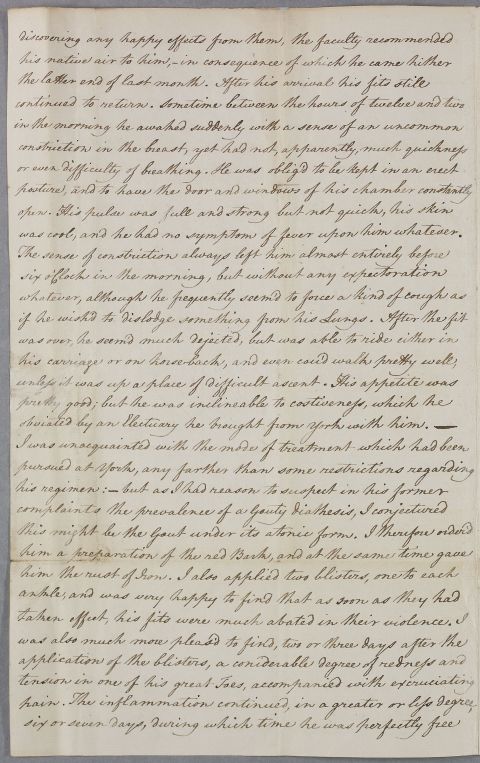 discovering any happy effects from them, the faculty recommended
his native air to him,- in consequence of which he came hither
the latter end of last month. After his arrival his fits still
continued to return. Sometime between the hours of twelve and two
in the morning he awaked suddenly with a sense of an uncommon
constriction in the breast, yet had not, apparently, much quickness
or even difficulty of breathing. He was oblig'd to be kept in an erect
posture, and to have the door and windows of his chamber constantly
open. His pulse was full and strong but not quick, his skin
was cool, and he had no symptom of fever upon him whatever.
The sense of constriction always left him almost entirely before
six o'Clock in the morning, but without any expectoration
whatever, although he frequently seem'd to force a kind of cough as
if he wish'd to dislodge something from his Lungs. After the fit
was over, he seemd much dejected, but was able to ride either in
his carriage or on horseback, and even coud walk pretty well;
unless it was up a place of difficult ascent. His appetite was
pretty good; but he was inclineable to costiveness, which he
obviated by an Electuary he brought from York with him. —
I was unacquainted with the mode of treatment which had been
pursued at York, any farther than some restrictions regarding
his regimen:— but as I had reason to suspect in his former
complaints the prevalence of a Gouty diathesis, I conjectured
this might be the Gout under its atonic form. I therefore order'd
him a preparation of the red Bark, and at the same time gave
him the rust of Iron. I also applied two blisters, one to each
ankle, and was very happy to find that as soon as they had
taken effect, his fits were much abated in their violence. I
was also much more pleas'd to find, two or three days after the
application of the blisters, a considerable degree of redness and
tension in one of his great Toes, accompanied with excruciating
pain. The inflammation continued, in a greater or less degree,
six or seven days, during which time he was perfectly free